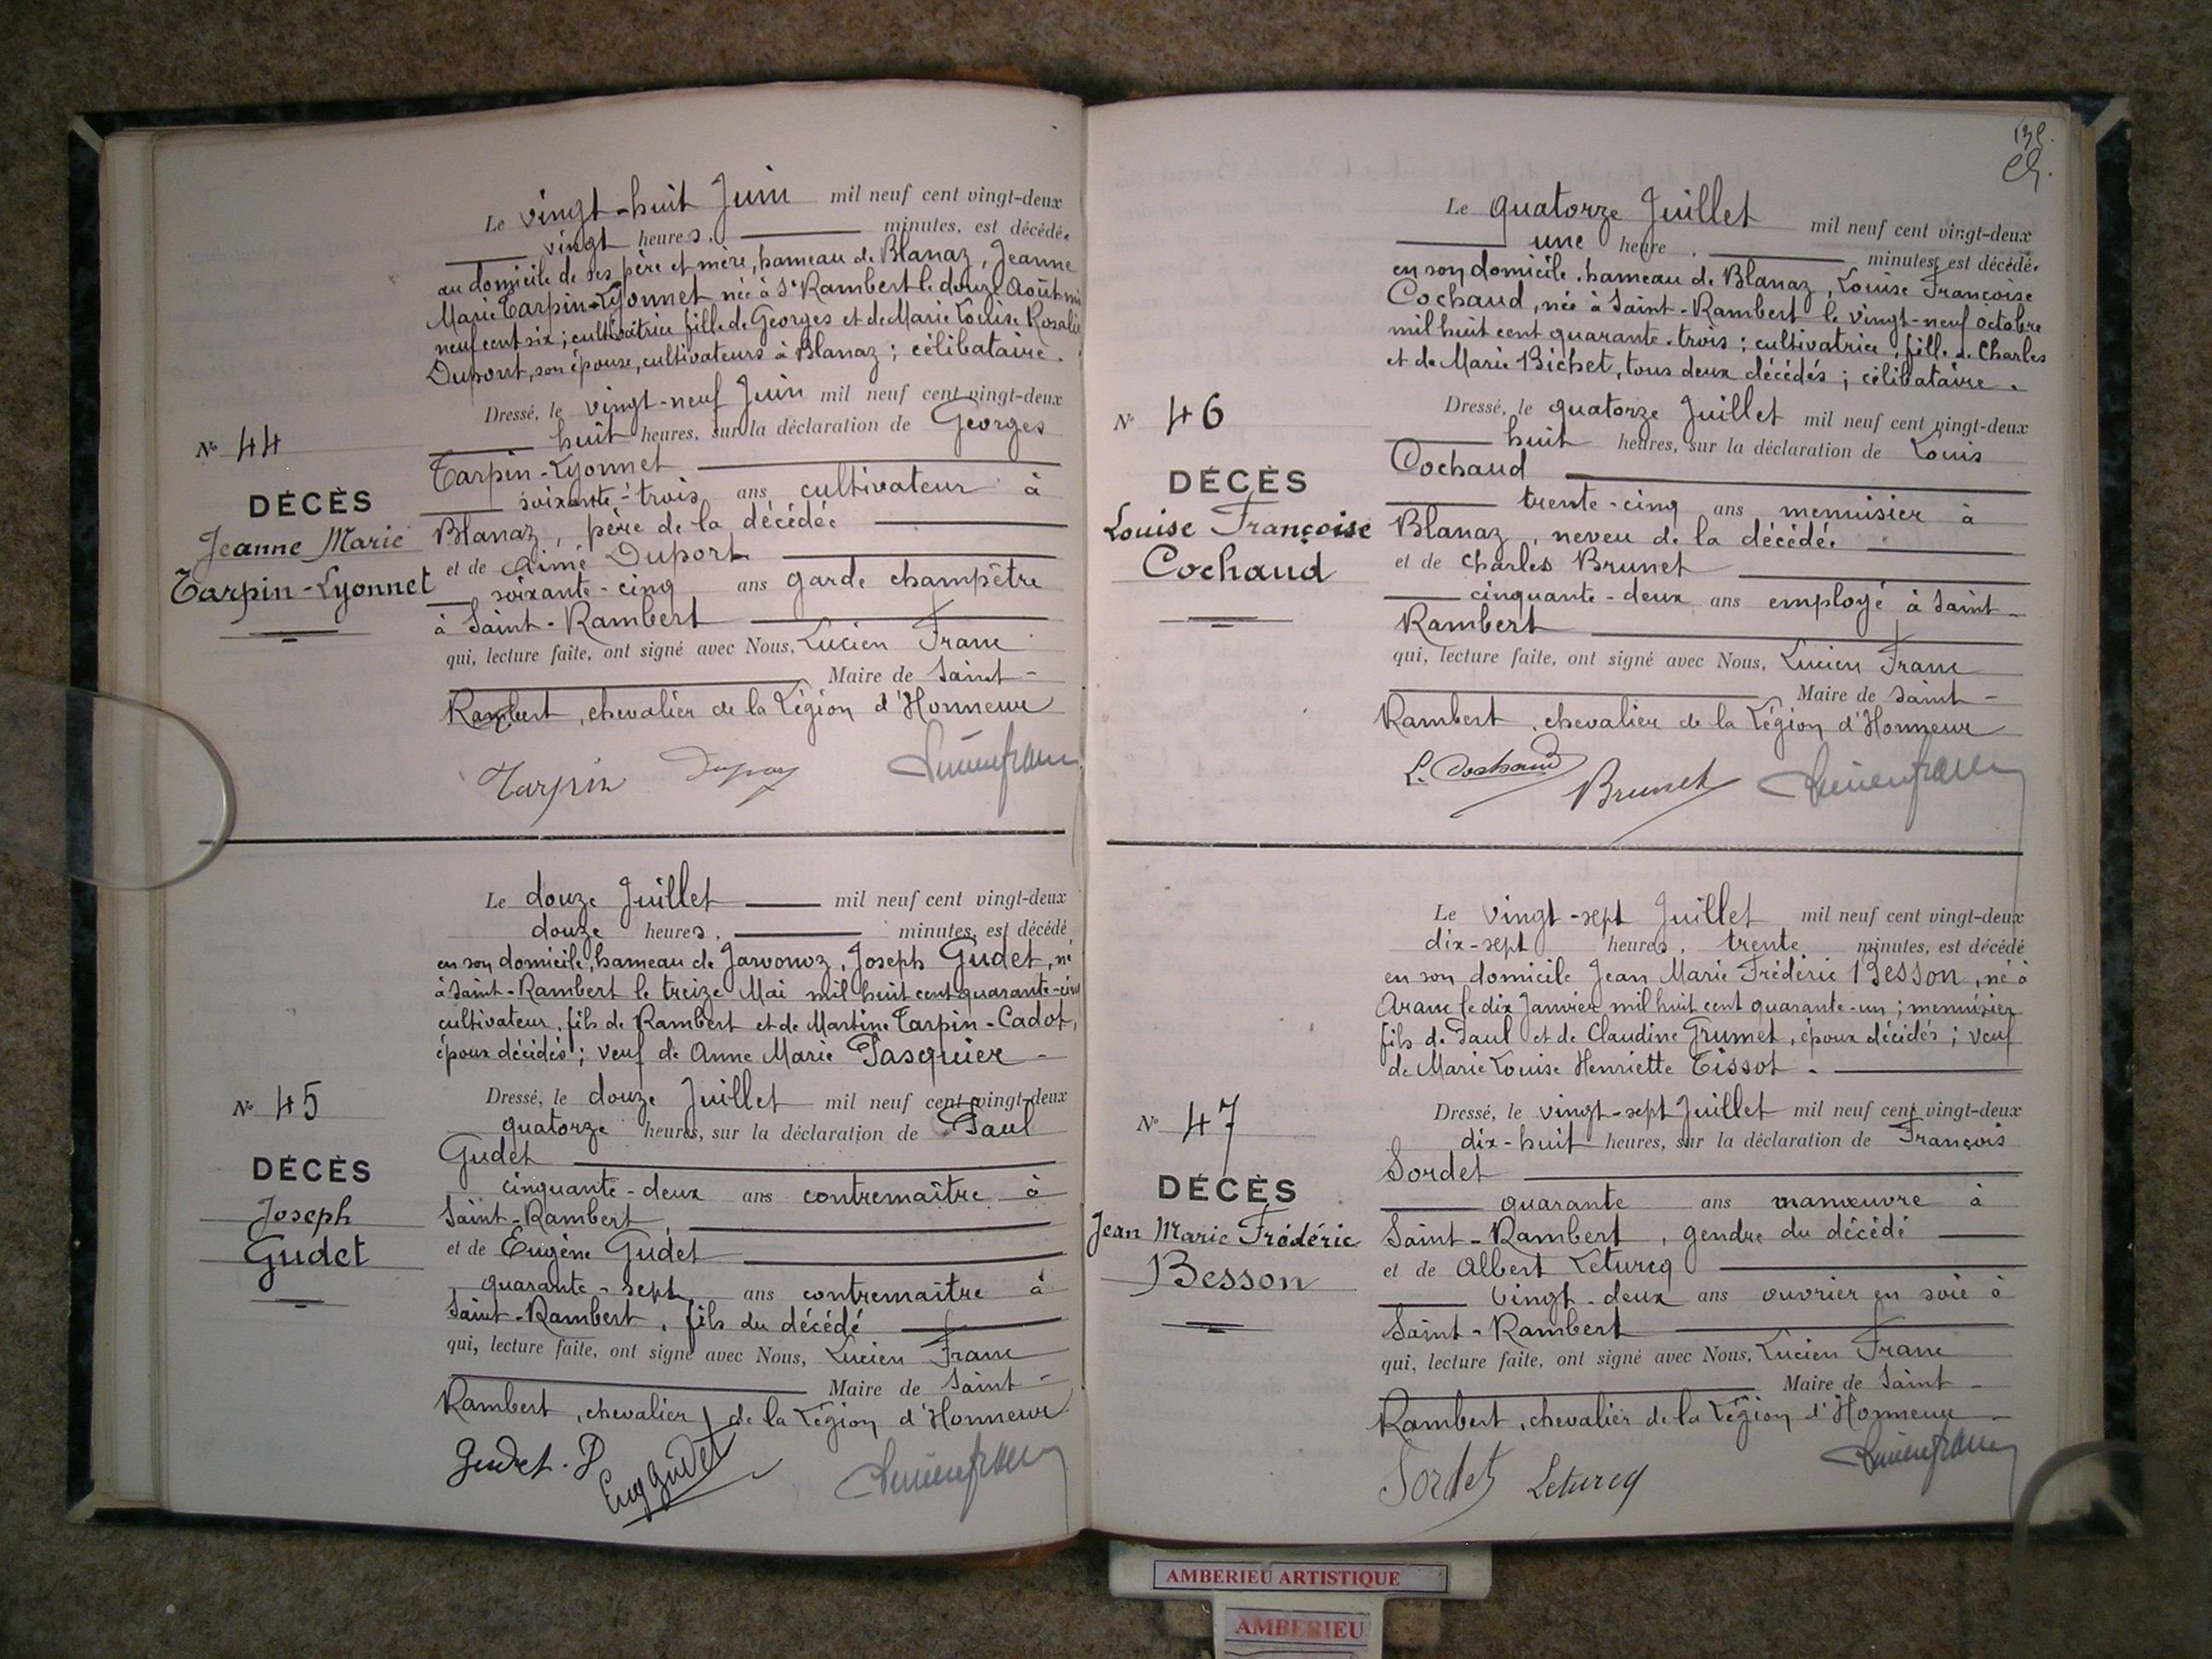 Le vingt-huit Juin mil neuf cent vingt-deux
vingt heures, minutes, est décédée
au domicile de ses père et mère, hameau de Blanaz, Jeanne
Marie Tarpin-Lyonnet née à St Rambert le douze Août mil
neuf cent six; cultivatrice fille de Georges et de Marie Louise Rosalie
Dupont, son épouse, cultivateurs à Blanaz; célibataire.
Dressé, le vingt-neuf Juin mil neuf cent vingt-deux
huit heures, sur la déclaration de Georges
Tarpin-Lyonnet
soixante-trois ans cultivateur à
Blanaz, père de la décédée
et de Aimé Duport
soixante-cinq ans garde champêtre
à Saint-Rambert
qui, lecture faite, ont signé avec Nous, Lucien Franc
Maire de Saint-
Rambert, chevalier de la Légion d'Honneur
Tarpin
N° 44
DÉCÈS
Jeanne Marie
Tarpin-Lyonnet
Le douze Juillet mil neuf cent vingt-deux
douze heures, minutes, est décédé
en son domicile, hameau de Javonoz, Joseph Gudet, né
à Saint-Rambert le treize Mai mil huit cent quarante-cinq
cultivateur, fils de Rambert et de Martine Tarpin-Cadot,
époux décédés; veuf de Anne Marie Pasquier -
Dressé, le douze Juillet mil neuf cent vingt-deux
quatorze heures, sur la déclaration de Paul
Gudet
cinquante-deux ans contremaître à
Saint-Rambert,
et de Eugène Gudet
quarante-sept ans contremaître à
Saint-Rambert, fils du décédé
qui, lecture faite, ont signé avec Nous, Lucien Franc
Maire de Saint-
Rambert, chevalier de la Légion d'Honneur
Gudet. P Eug Gudet Lucien Franc
N° 45
DÉCÈS
Joseph
Gudet
Le quatorze Juillet mil neuf cent vingt-deux
une heure, minutes, est décédée
en son domicile, hameau de Blanaz, Louise Françoise
Cochaud, née à Saint-Rambert le vingt-neuf octobre
mil huit cent quarante-trois; cultivatrice, fille de Charles
et de Marie Bichet, tous deux décédés; célibataire.
Dressé, le quatorze Juillet mil neuf cent vingt-deux
huit heures, sur la déclaration de Louis
Cochaud
trente-cinq ans menuisier à
Blanaz, neveu de la décédée
et de Charles Brunet
cinquante-deux ans employé à Saint-
Rambert
qui, lecture faite, ont signé avec Nous, Lucien Franc
Maire de Saint-
Rambert, chevalier de la Légion d'Honneur
L. Cochaud Brunet Lucien Franc
N° 46
DÉCÈS
Louise Françoise
Cochaud
Le vingt-sept Juillet mil neuf cent vingt-deux
dix-sept heures, trente minutes, est décédé
en son domicile Jean Marie Frédéric Besson, né à
Aranc le dix Janvier mil huit cent quarante-un; menuisier
fils de Paul et de Claudine Grumet, époux décédés; veuf
de Marie Louise Henriette Tissot.
Dressé, le vingt-sept Juillet mil neuf cent vingt-deux
dix-huit heures, sur la déclaration de François
Sordet
quarante ans manœuvre à
Saint-Rambert, gendre du décédé
et de Albert Leturcq
vingt-deux ans ouvrier en soie à
Saint-Rambert
qui, lecture faite, ont signé avec Nous, Lucien Franc
Maire de Saint-
Rambert, chevalier de la Légion d'Honneur
Sordet Leturcq Lucien Franc
N° 47
DÉCÈS
Jean Marie Frédéric
Besson
AMBERIEU ARTISTIQUE
AMBERIEU